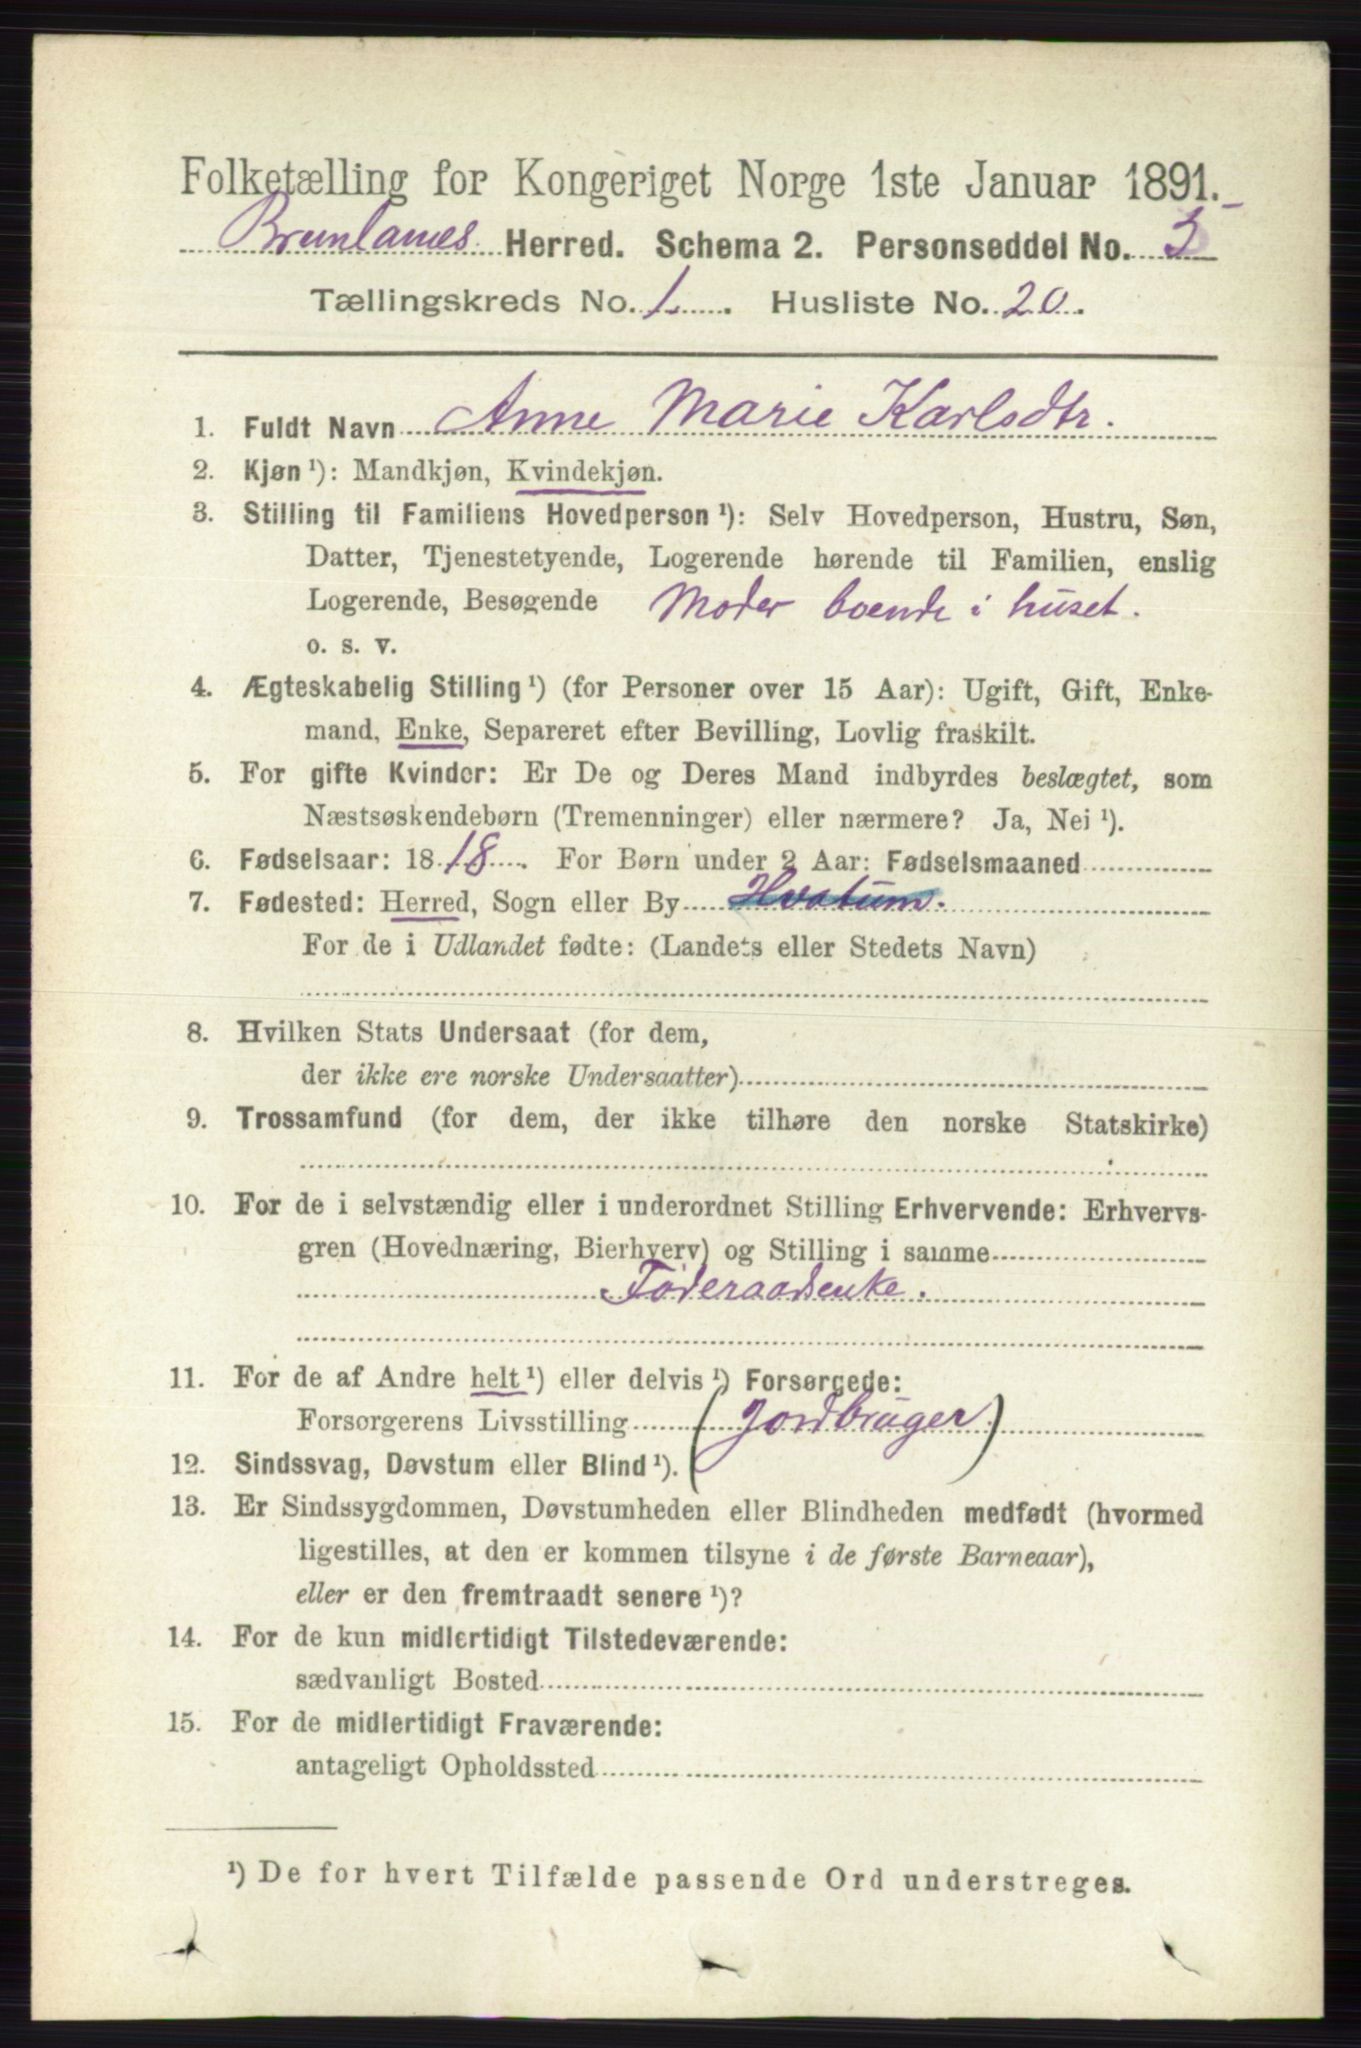 Folketælling for Kongeriget Norge 1ste Januar 1891.
Brunlanes Herred. Schema 2. Personseddel No. 5
Tællingskreds No. 1. Husliste No. 20.
1. Fuldt Navn Anne Marie Karlsdtr.
2. Kjøn ¹): Mandkjøn, Kvindekjøn.
3. Stilling til Familiens Hovedperson ¹): Selv Hovedperson, Hustru, Søn,
Datter, Tjenestetyende, Logerende hørende til Familien, enslig
Logerende, Besøgende Moder boende i huset.
o. s. v.
4. Ægteskabelig Stilling ¹) (for Personer over 15 Aar): Ugift, Gift, Enke-
mand, Enke, Separeret efter Bevilling, Lovlig fraskilt.
5. For gifte Kvinder: Er De og Deres Mand indbyrdes beslægtet, som
Næstsøskendebørn (Tremenninger) eller nærmere? Ja, Nei ¹).
6. Fødselsaar: 1818. For Børn under 2 Aar: Fødselsmaaned
7. Fødested: Herred, Sogn eller By Hvatum.
For de i Udlandet fødte: (Landets eller Stedets Navn)
8. Hvilken Stats Undersaat (for dem,
der ikke ere norske Undersaatter)
9. Trossamfund (for dem, der ikke tilhøre den norske Statskirke)
10. For de i selvstændig eller i underordnet Stilling Erhvervende: Erhvervs-
gren (Hovednæring, Bierhverv) og Stilling i samme
Føderaadsenke.
11. For de af Andre helt ¹) eller delvis ¹) Forsørgede:
Forsørgerens Livsstilling (Jordbruger)
12. Sindssvag, Døvstum eller Blind ¹).
13. Er Sindssygdommen, Døvstumheden eller Blindheden medfødt (hvormed
ligestilles, at den er kommen tilsyne i de første Barneaar),
eller er den fremtraadt senere ¹)?
14. For de kun midlertidigt Tilstedeværende:
sædvanligt Bosted
15. For de midlertidigt Fraværende:
antageligt Opholdssted
¹) De for hvert Tilfælde passende Ord understreges.